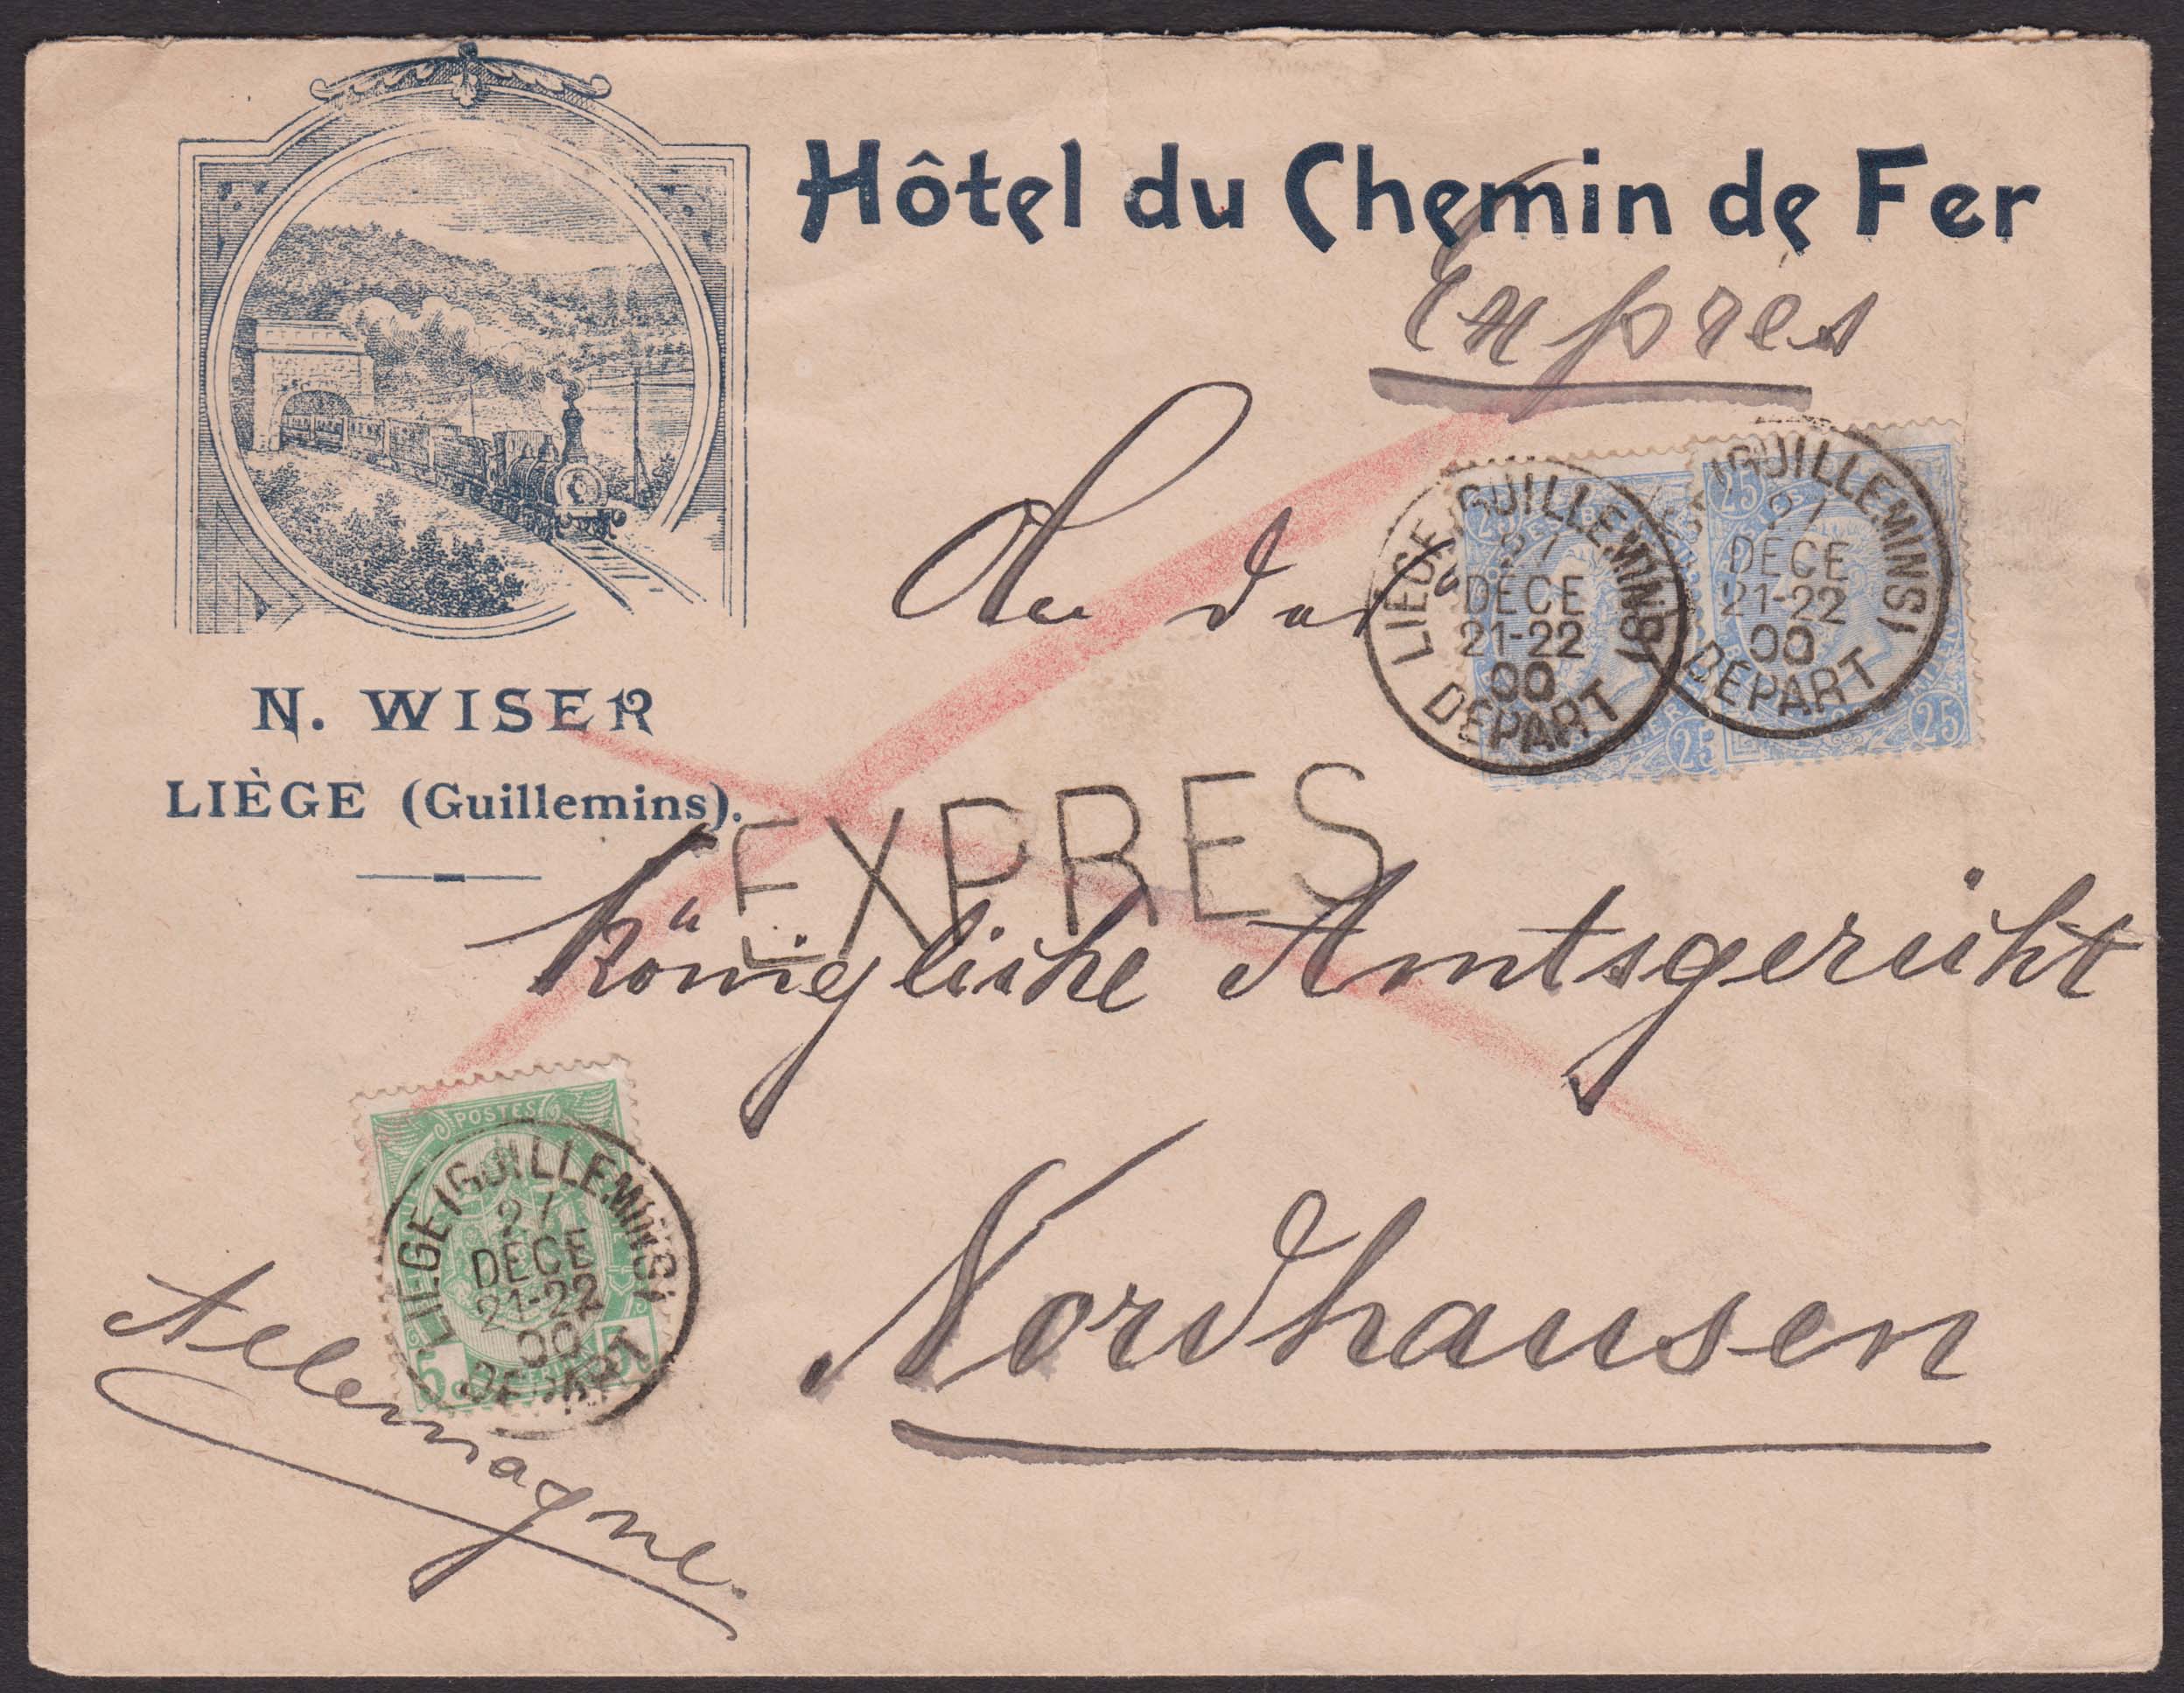 Hôtel du Chemin de Fer
Expres
An das
N. WISER
LIÈGE (Guillemins).
EXPRES
Königliche Amtsgericht
Nordhausen
Allemagne.
25 25
25 25
LIEGE (GUILLEMINS)
27
DECE
21-22
00
DEPART
(GUILLEMINS)
27
DECE
21-22
00
DEPART
POSTES
5 5
LIEGE (GUILLEMINS)
27
DECE
21-22
00
DEPART